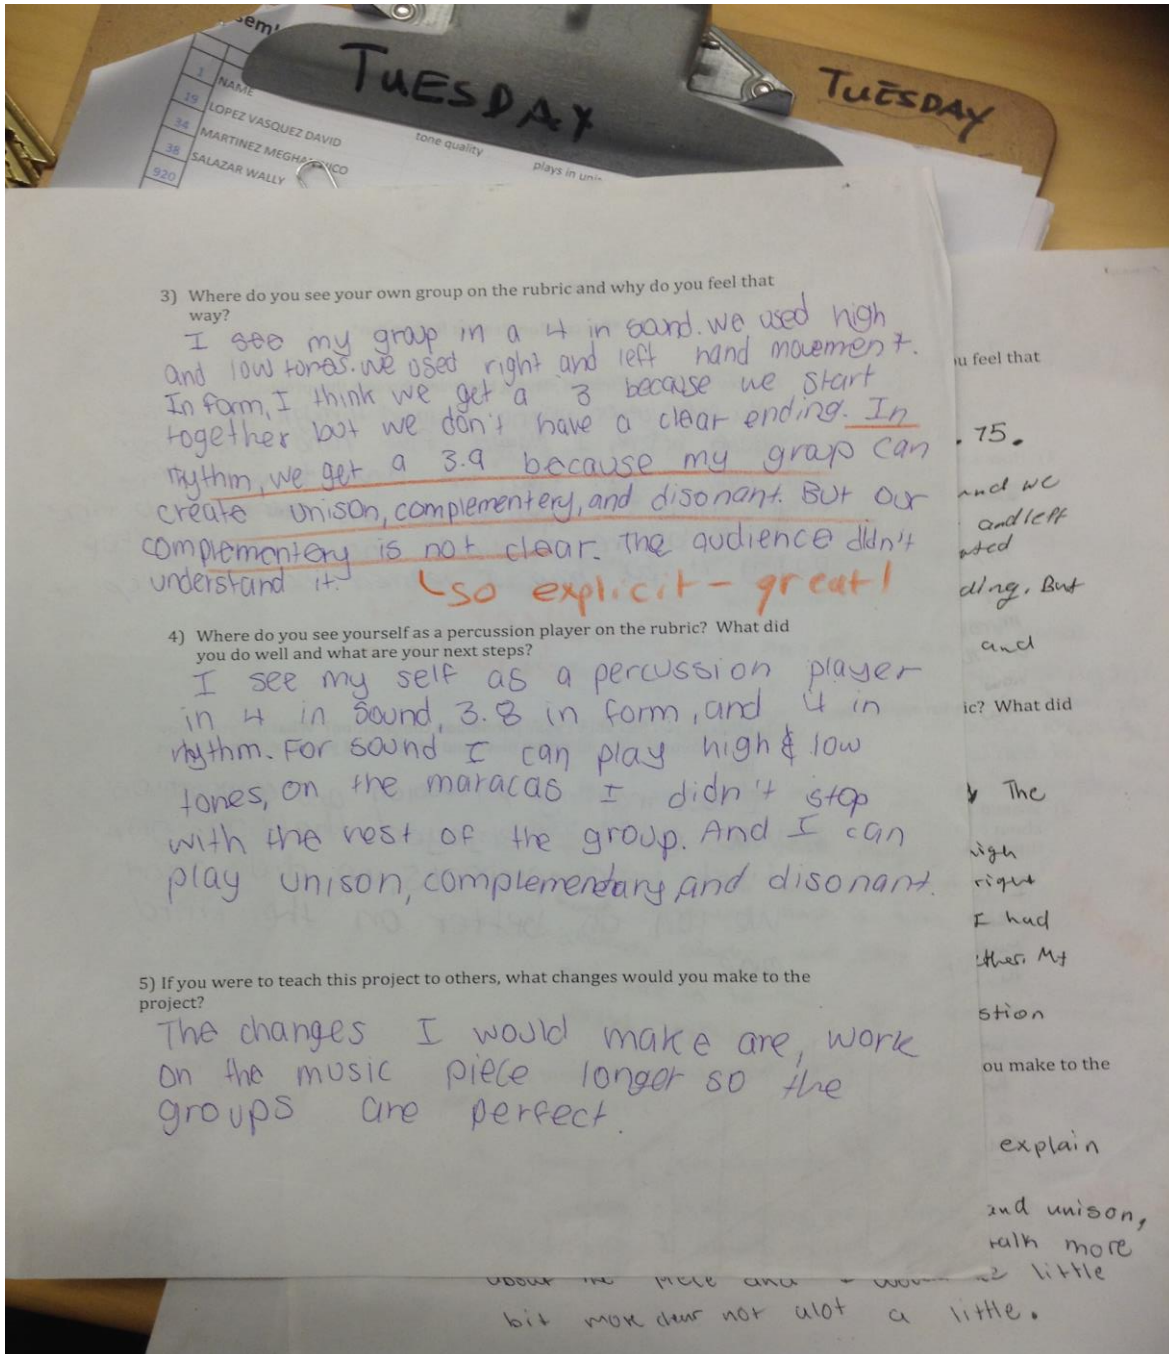 TUESDAY
TUESDAY
1 NAME
19 LOPEZ VASQUEZ DAVID
34 MARTINEZ
38 SALAZAR WALLY
920
tone quality
plays in
3) Where do you see your own group on the rubric and why do you feel that
way?
I see my group in a 4 in sound. we used high
and low tones. we used right and left hand movement.
In form, I think we get a 3 because we start
together but we don't have a clear ending. In
rhythm, we get a 3.9 because my group can
create unison, complementery, and disonant. But our
complementery is not clear. The audience didn't
understand it.
so explicit - great!
4) Where do you see yourself as a percussion player on the rubric? What did
you do well and what are your next steps?
I see my self as a percussion player
in 4 in sound, 3.8 in form, and 4 in
rhythm. For sound I can play high & low
tones, on the maracas I didn't stop
with the rest of the group. And I can
play unison, complemendary, and disonant.
5) If you were to teach this project to others, what changes would you make to the
project?
The changes I would make are, work
on the music piece longer so the
groups are perfect.
u feel that
.75.
and we
and left
ding. But
and
ic? What did
The
high
right
I had
ther. My
stion
ou make to the
explain
and unison,
talk more
about the piece and little
bit more not alot a little.